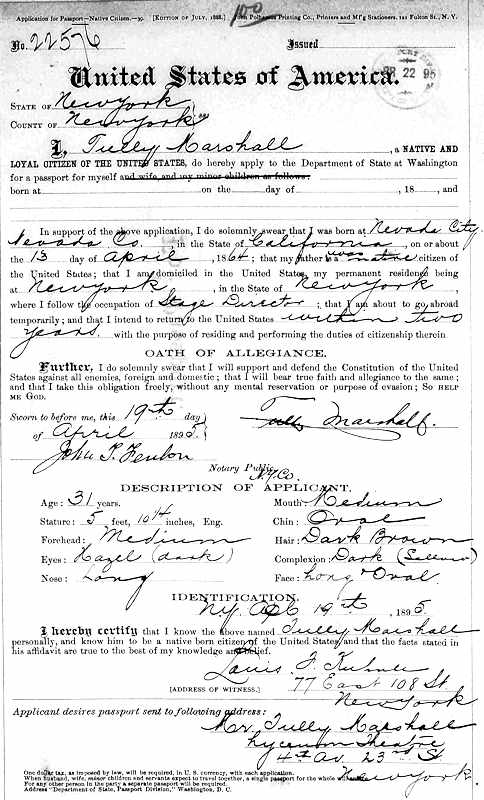 100
Application for Passport—Native Citizen.—39. [EDITION OF JULY, 1888.] Printing Co., Printers and M'f'g Stationers. 121 Fulton St., N. Y.
No. 22576 Issued
22 95
United States of America.
STATE OF New York
COUNTY OF New York
I, Tully Marshall, a NATIVE AND
LOYAL CITIZEN OF THE UNITED STATES, do hereby apply to the Department of State at Washington
for a passport for myself and wife, and my minor children as follows:
born at on the day of , 18 , and
In support of the above application, I do solemnly swear that I was born at Nevada City
Nevada Co., in the State of California, on or about
the 13 day of April, 1864; that my father is a was native citizen of
the United States; that I am domiciled in the United States, my permanent residence being
at New York, in the State of New York,
where I follow the occupation of Stage Director; that I am about to go abroad
temporarily; and that I intend to return to the United States within two
years with the purpose of residing and performing the duties of citizenship therein
OATH OF ALLEGIANCE.
Further, I do solemnly swear that I will support and defend the Constitution of the United
States against all enemies, foreign and domestic; that I will bear true faith and allegiance to the same;
and that I take this obligation freely, without any mental reservation or purpose of evasion; SO HELP
ME GOD.
Sworn to before me, this 19th day
of April 1895
Tully Marshall.
John T. Fenlon
Notary Public.
N.Y. Co.
DESCRIPTION OF APPLICANT.
Age: 31 years. Mouth: Medium
Stature: 5 feet, 10 1/4 inches, Eng. Chin: Oval
Forehead: Medium Hair: Dark Brown
Eyes: Hazel (dark) Complexion: Dark (Sallow)
Nose: Long Face: Long Oval.
IDENTIFICATION.
NY. Apl 19th, 1895.
I hereby certify that I know the above named Tully Marshall
personally, and know him to be a native born citizen of the United States, and that the facts stated in
his affidavit are true to the best of my knowledge and belief.
Louis F.
77 East 108 St.
[ADDRESS OF WITNESS.]
New York
Applicant desires passport sent to following address:
Mr. Tully Marshall
Lyceum Theatre
4th Av. 23rd St
New York
One dollar tax, as imposed by law, will be required, in U. S. currency, with each application.
When husband, wife, minor children and servants expect to travel together, a single passport for the whole will
For any other person in the party a separate passport will be required.
Address "Department of State, Passport Division," Washington, D. C.